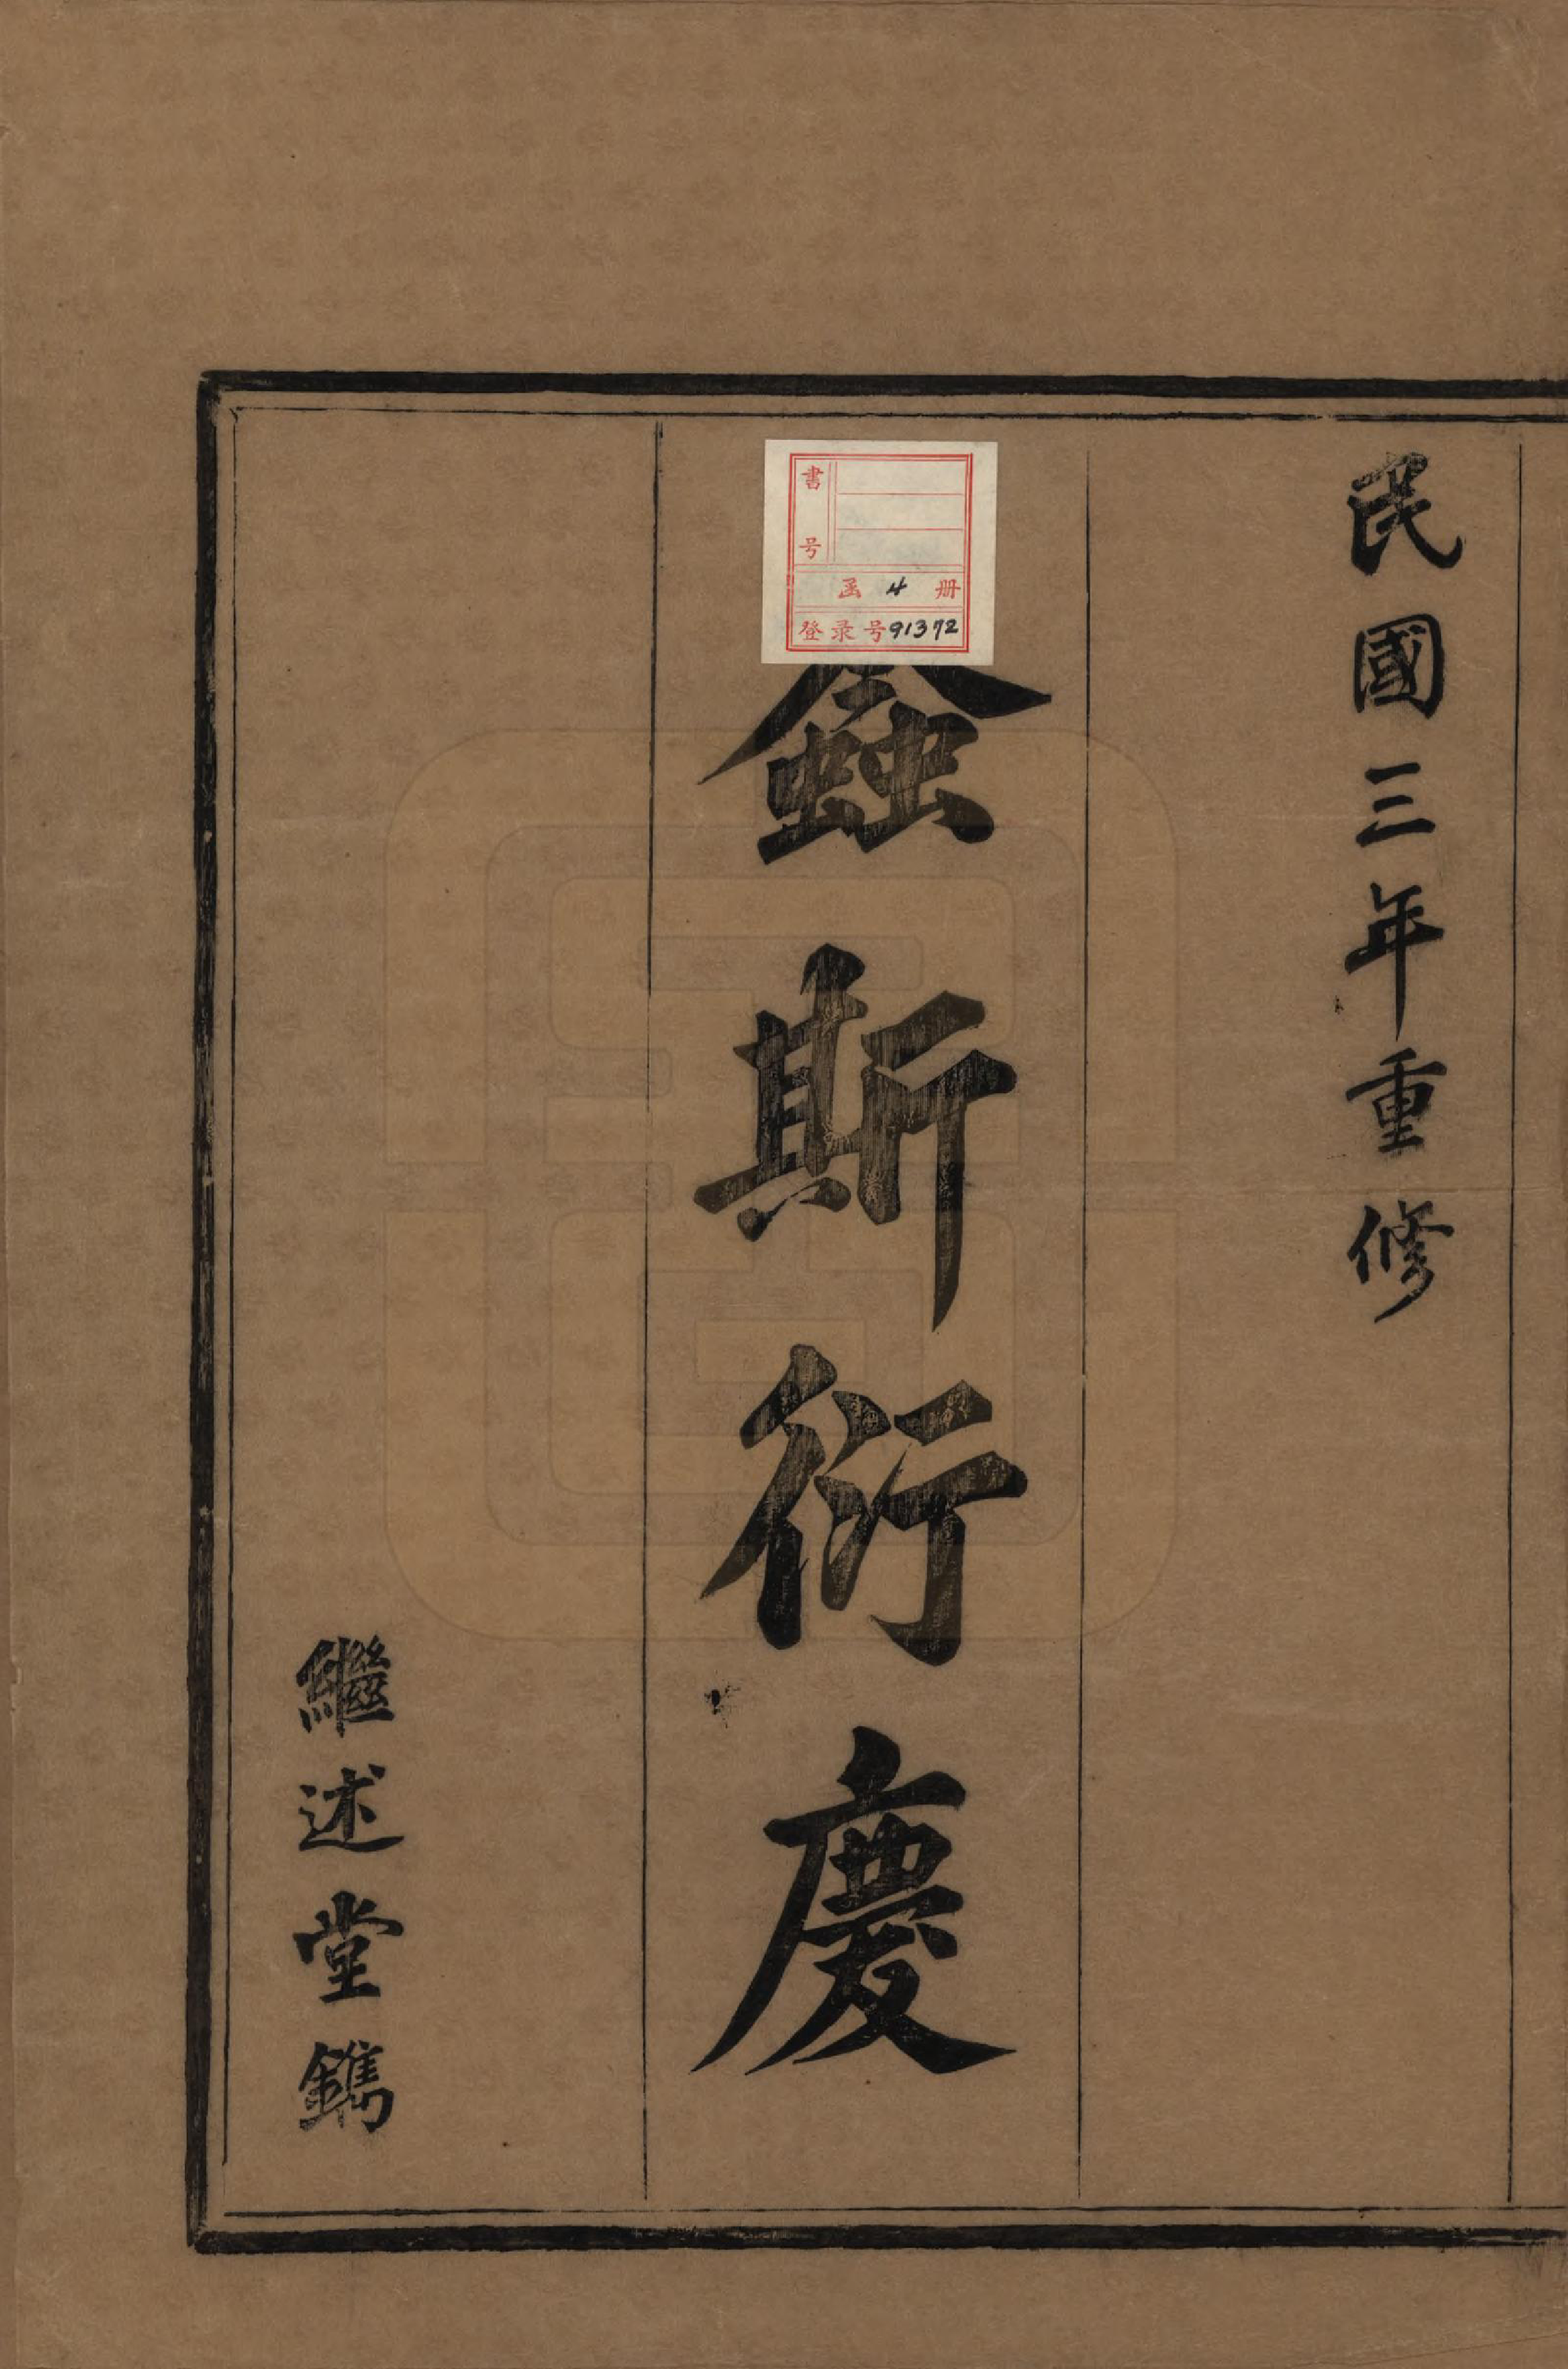 民國三年重修
螽斯衍慶
繼述堂鐫
書号
函 4 册
登录号91372